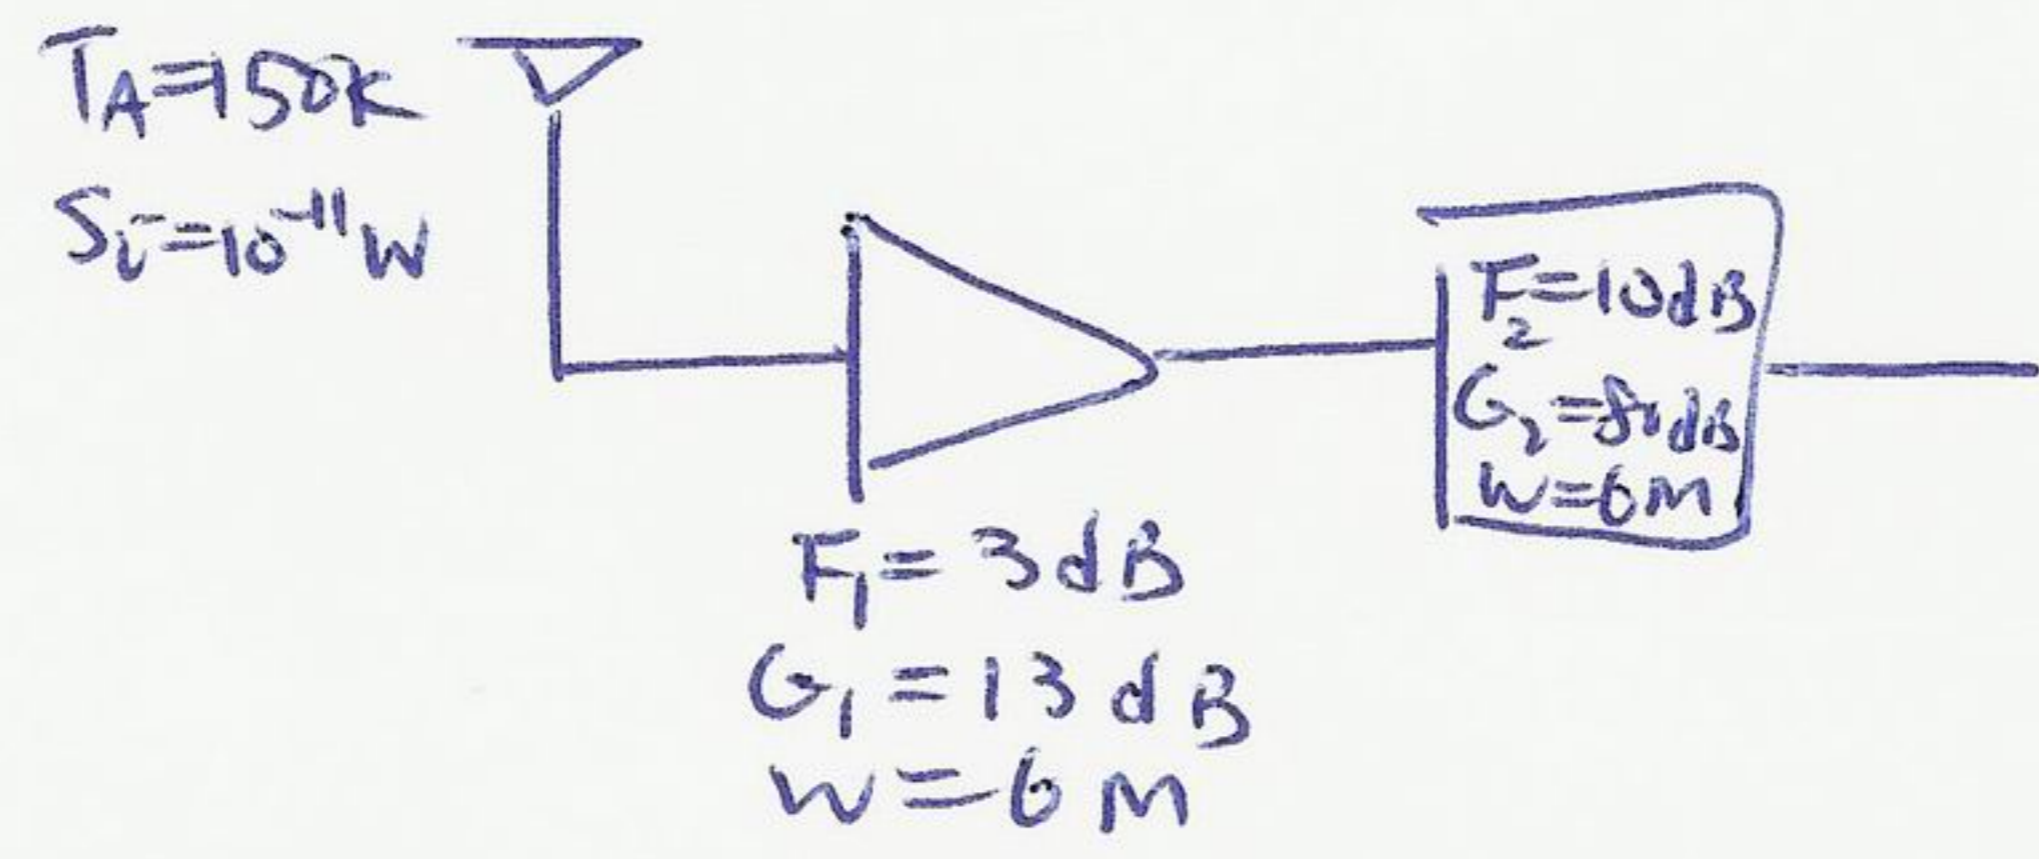 T_A=150K
S_i=10^-11 W
F_1= 3dB
G_1=13dB
W=6M
F_2=10dB
G_2=80dB
W=6M